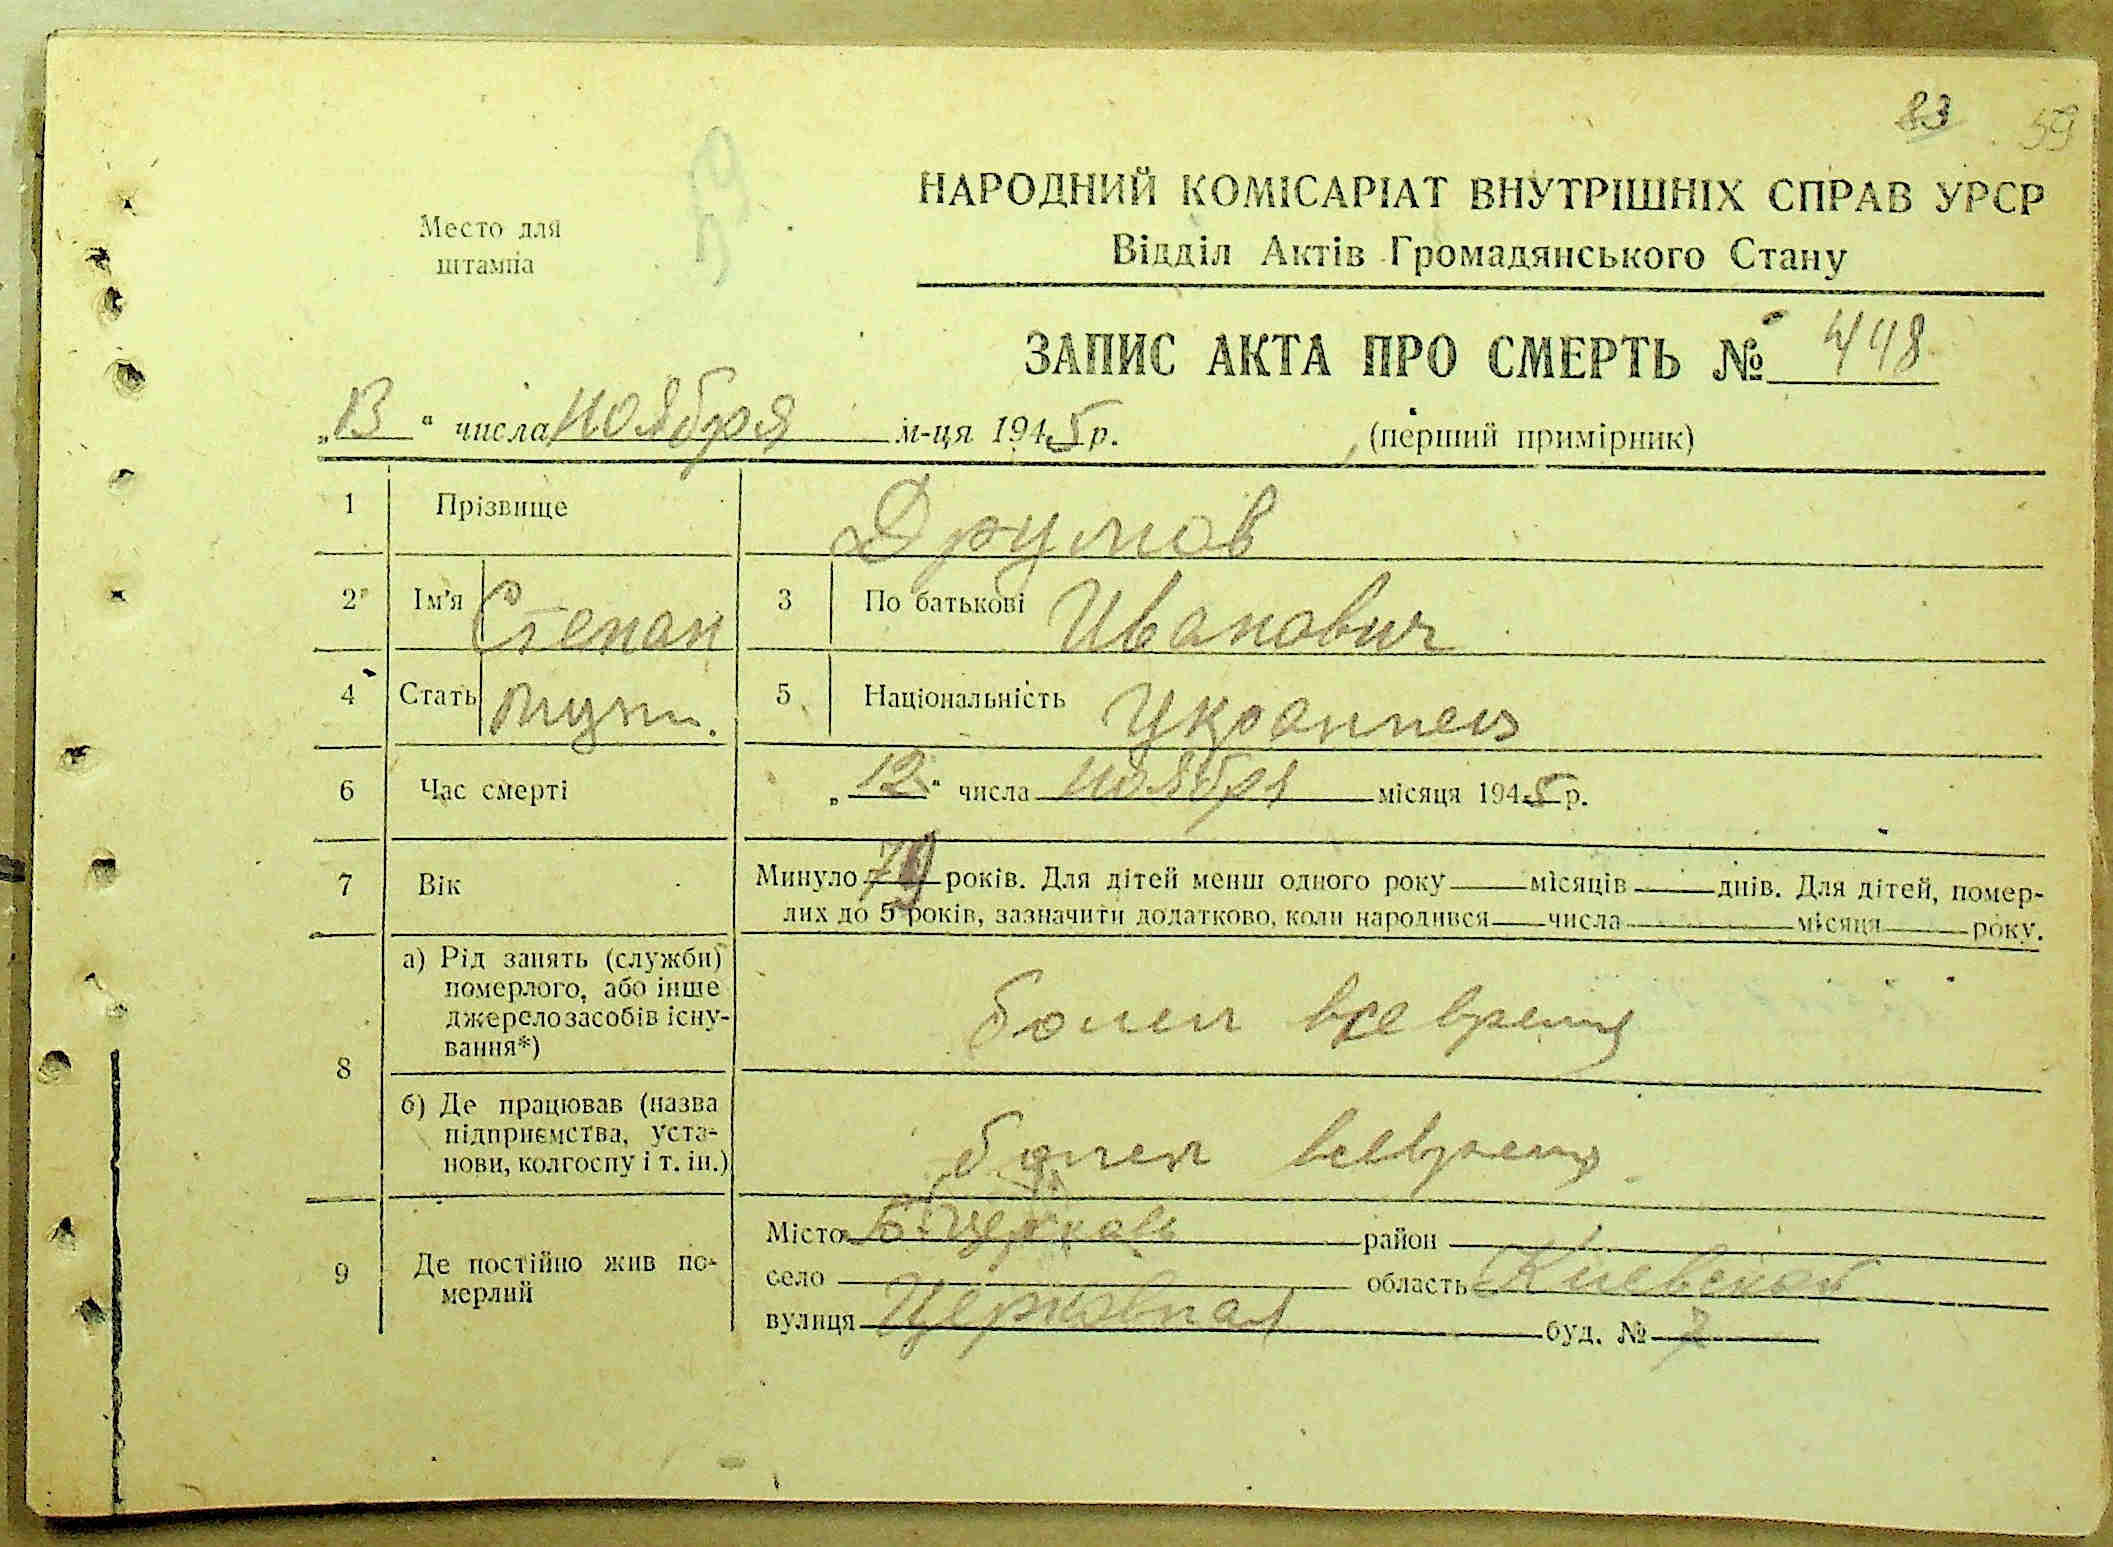 83 59
НАРОДНИЙ КОМІСАРІАТ ВНУТРІШНІХ СПРАВ УРСР
Место для
штампа
Відділ Актів Громадянського Стану
ЗАПИС АКТА ПРО СМЕРТЬ № 448
„13" числа ноября м-ця 1945 р. (перший примірник)
1 Прізвище Друмов
2 Ім'я Степан 3 По батькові Иванович
4 Стать муж. 5 Національність Украинец
6 Час смерті „12" числа ноября місяця 1945 р.
7 Вік Минуло 79 років. Для дітей менш одного року місяців днів. Для дітей, помер-
лих до 5 років, зазначити додатково, коли народився числа місяця року.
8 а) Рід занять (служби)
померлого, або інше
джерело засобів існу-
вання*)
болел все время
б) Де працював (назва
підприємства, уста-
нови, колгоспу і т. ін.)
болел все время
9 Де постійно жив по-
мерлий
Місто Б. Церковь район
село область Киевская
вулиця Церковная буд. № 7